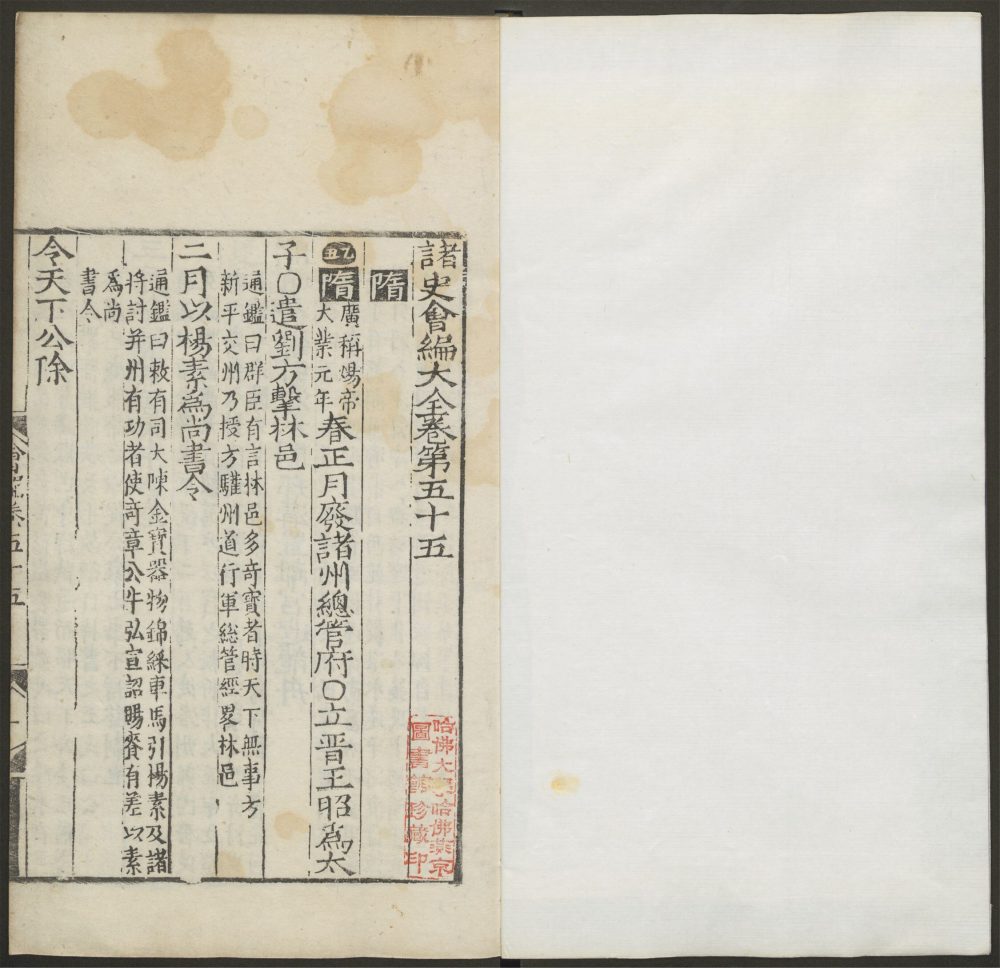 諸史會編大全卷第五十五
隋
乙丑 隋 廣稱煬帝
大業元年 春正月廢諸州總管府〇立晋王昭爲太
子〇遣劉方擊林邑
通鑑曰群臣有言林邑多奇寶者時天下無事方
新平交州乃授方驩州道行軍総管經畧林邑
二月以楊素爲尚書令
通鑑曰敕有司大陳金寶器物錦綵車馬引楊素及諸
將討并州有功者使奇章公牛弘宣詔賜賚有差以素
爲尚
書令
令天下公除
會編卷五十五
一
哈佛大學哈佛燕京
圖書舘珍藏印